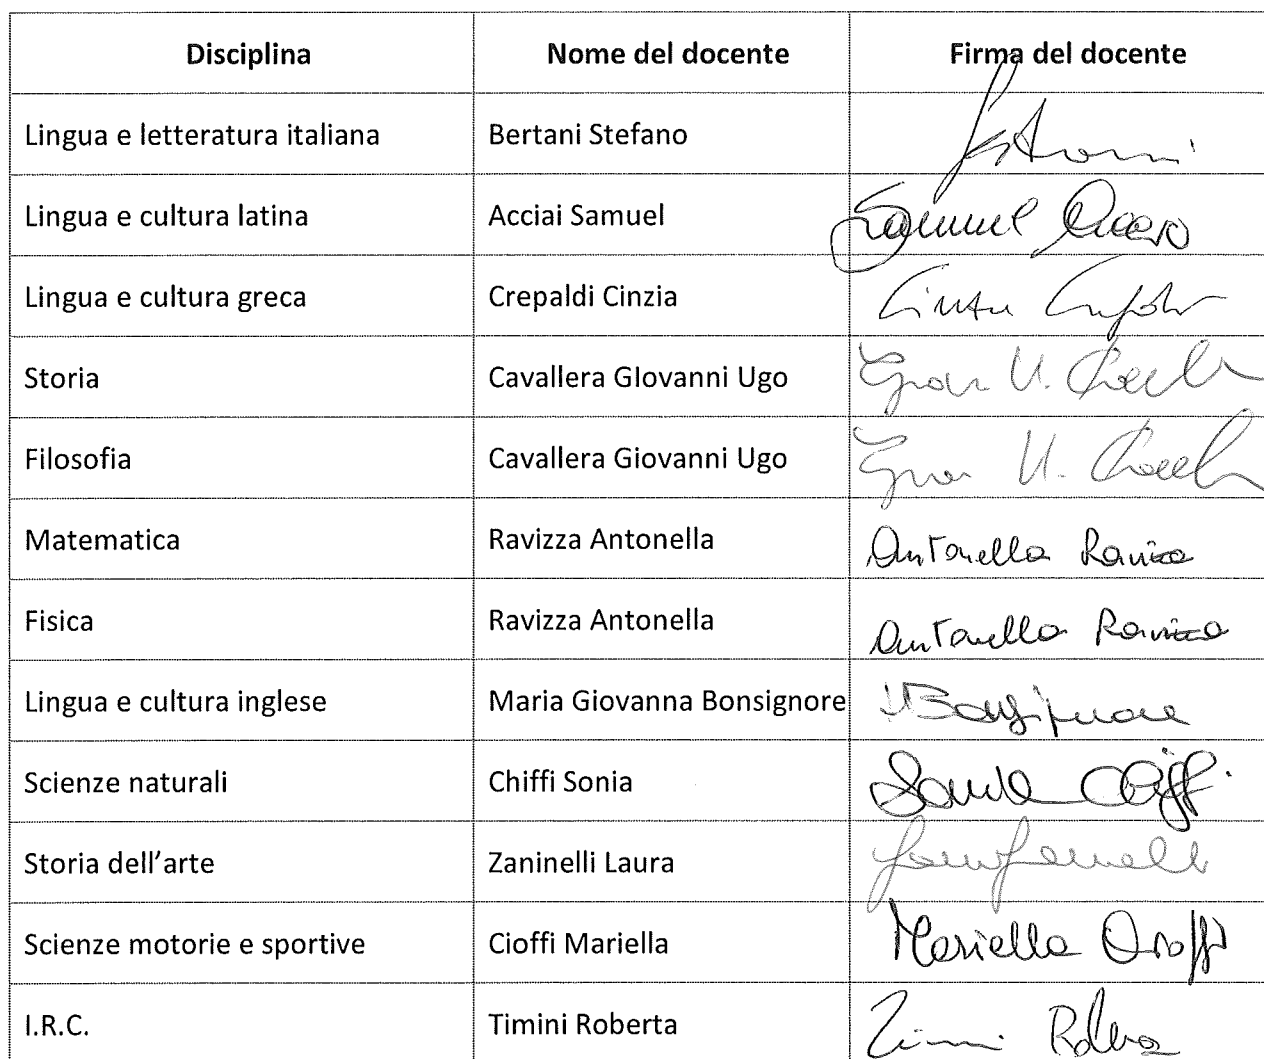 Disciplina Nome del docente Firma del docente
Lingua e letteratura italiana Bertani Stefano
Lingua e cultura latina Acciai Samuel Samuel
Lingua e cultura greca Crepaldi Cinzia
Storia Cavallera GIovanni Ugo U.
Filosofia Cavallera Giovanni Ugo U.
Matematica Ravizza Antonella Antonella Ravizza
Fisica Ravizza Antonella Antonella Ravizza
Lingua e cultura inglese Maria Giovanna Bonsignore
Scienze naturali Chiffi Sonia Sonia Chiffi
Storia dell'arte Zaninelli Laura
Scienze motorie e sportive Cioffi Mariella Mariella Cioffi
I.R.C. Timini Roberta